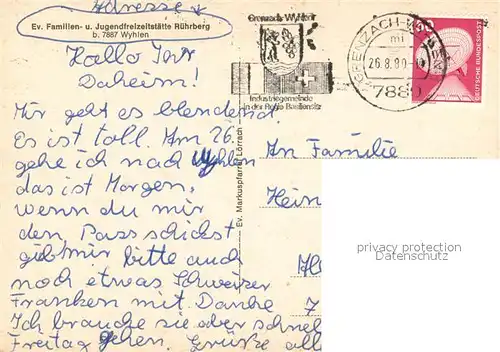 Adresse
Ev. Familien- u. Jugendfreizeitstätte Rührberg
b. 7887 Wyhlen
Hallo Ihr
Daheim!
Mir geht es blendend.
Es ist toll. Am 26.
gehe ich nach Wyhlen
das ist Morgen,
wenn du mir
den Pass schickst
gib mir bitte auch
noch etwas Schweizer
Franken mit. Danke
Ich brauche sie aber schnell
Freitag gehen. Grüße all
Ev. Markuspfarrei Lörrach
Grenzach-Wyhlen
Industriegemeinde
in der Regio Basiliensis
GRENZACH-WYHLEN
mi
26.8.80
7889
DEUTSCHE BUNDESPOST
An Familie
Hein
privacy protection
datenschutz